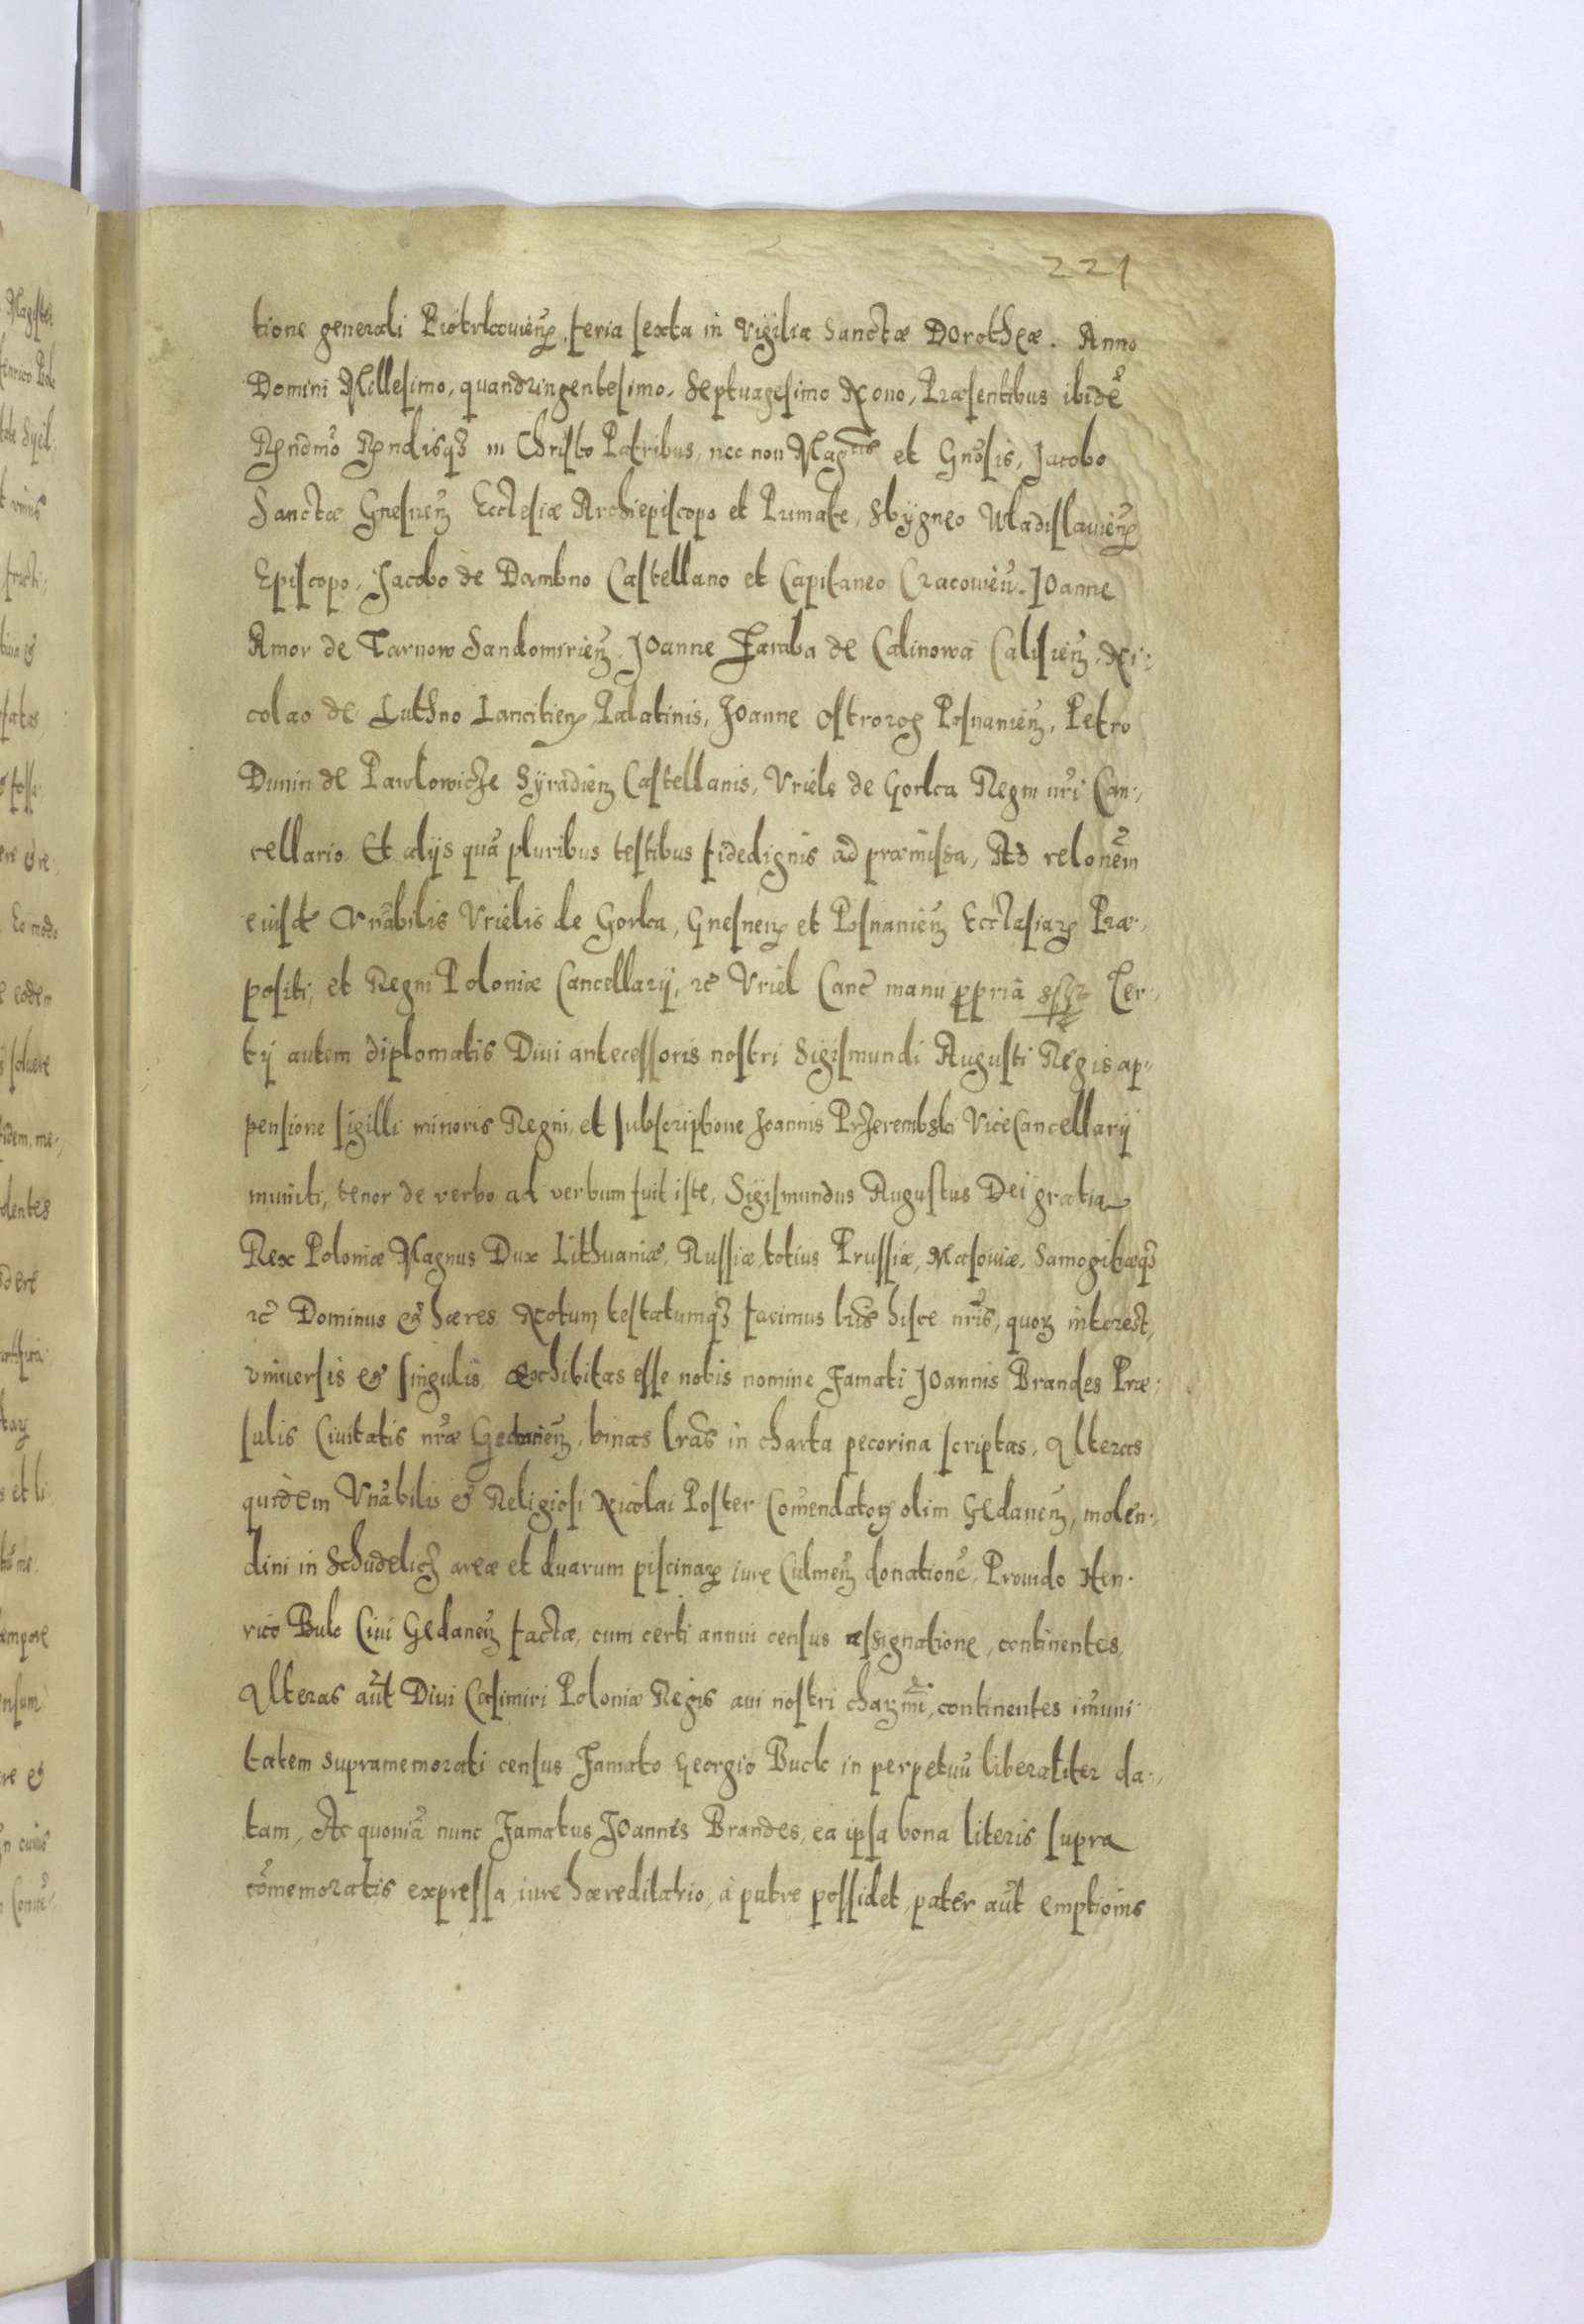 221
tione generali Piotrkouieñ, feria sexta in vigilia Sanctæ Dorotheæ. Anno
Domini Millesimo, quandringentesimo, Septuagesimo Nono, Præsentibus ibidẽ
Rendmõ Rendisqȝ in Christo Patribus, nec non Magcis et Gnõsis, Jacobo
Sanctæ Gnesneñ Ecclesiæ Archiepiscopo et Primate, Sbÿgneo Wladislauieñ
Episcopo, Jacobo de Dambno Castellano et Capitaneo Cracouieñ. Joanne
Amor de Tarnow Sandomirieñ, Joanne Jaraba de Calinowa Calisieñ, Ni:
colao de Luthno Lancitieñ, Palatinis, Joanne Ostrorog Posnanieñ, Petro
Dunin de Pawlowicze Sÿradieñ Castellanis, Vriele de Gorka Regni nr̃i Can:,
cellario. Et alijs quã pluribus testibus fidedignis ad præmissa, Ad relonẽm
eiusd Vnãbilis Vrielis de Gorka, Gnesneñ et Posnanieñ Ecclesiaꝝ Præ:,
positi, et Regni Poloniæ Cancellarij, ꝛc Vriel Canc̃ manu ꝓpria sst Ter:,
tij autem diplomatis Diui antecessoris nostri Sigismundi Augusti Regis ap:,
pensione sigilli minoris Regni, et subscriptione Joannis Przerembski ViceCancellarij
muniti, tenor de verbo ad verbum fuit iste, Sigismundus Augustus Dei gratia
Rex Poloniæ Magnus Dux Lithuaniæ, Russiæ, totius Prussiæ, Masouiæ, Samogitiæqȝ
ꝛc Dominus et hæres. Notum testatumqȝ facimus lr̃is hisce nr̃is, quoꝝ interest,
vniuersis et singulis, exhibitas esse nobis nomine Famati Joannis Brandes Præ:
sulis Ciuitatis nr̃æ Gedanieñ, binas lr̃as in charta pecorina scriptas, Alteras
quidem Vnãbilis et Religiosi Nicolai Poster Comẽndatoꝝ olim Gedaneñ, molen:,
dini in Schudelicz areæ et duarum piscinaꝝ iure Culmeñ donationẽ, Prouido Hen:
rico Buk Ciui Gedaneñ factæ, cum certi annui census assignatione, continentes,
Alteras aũt Diui Casimiri Poloniæ Regis aui nostri chaꝝmi, continentes imũni
tatem supramemorati census Famato Georgio Buck in perpetuũ liberaliter da:,
tam, Ac quoniã nunc Famatus Joannes Brandes, ea ipsa bona literis supra
cõmemoratis expressa, iure hæreditario, à patre possidet, pater aũt emptionis